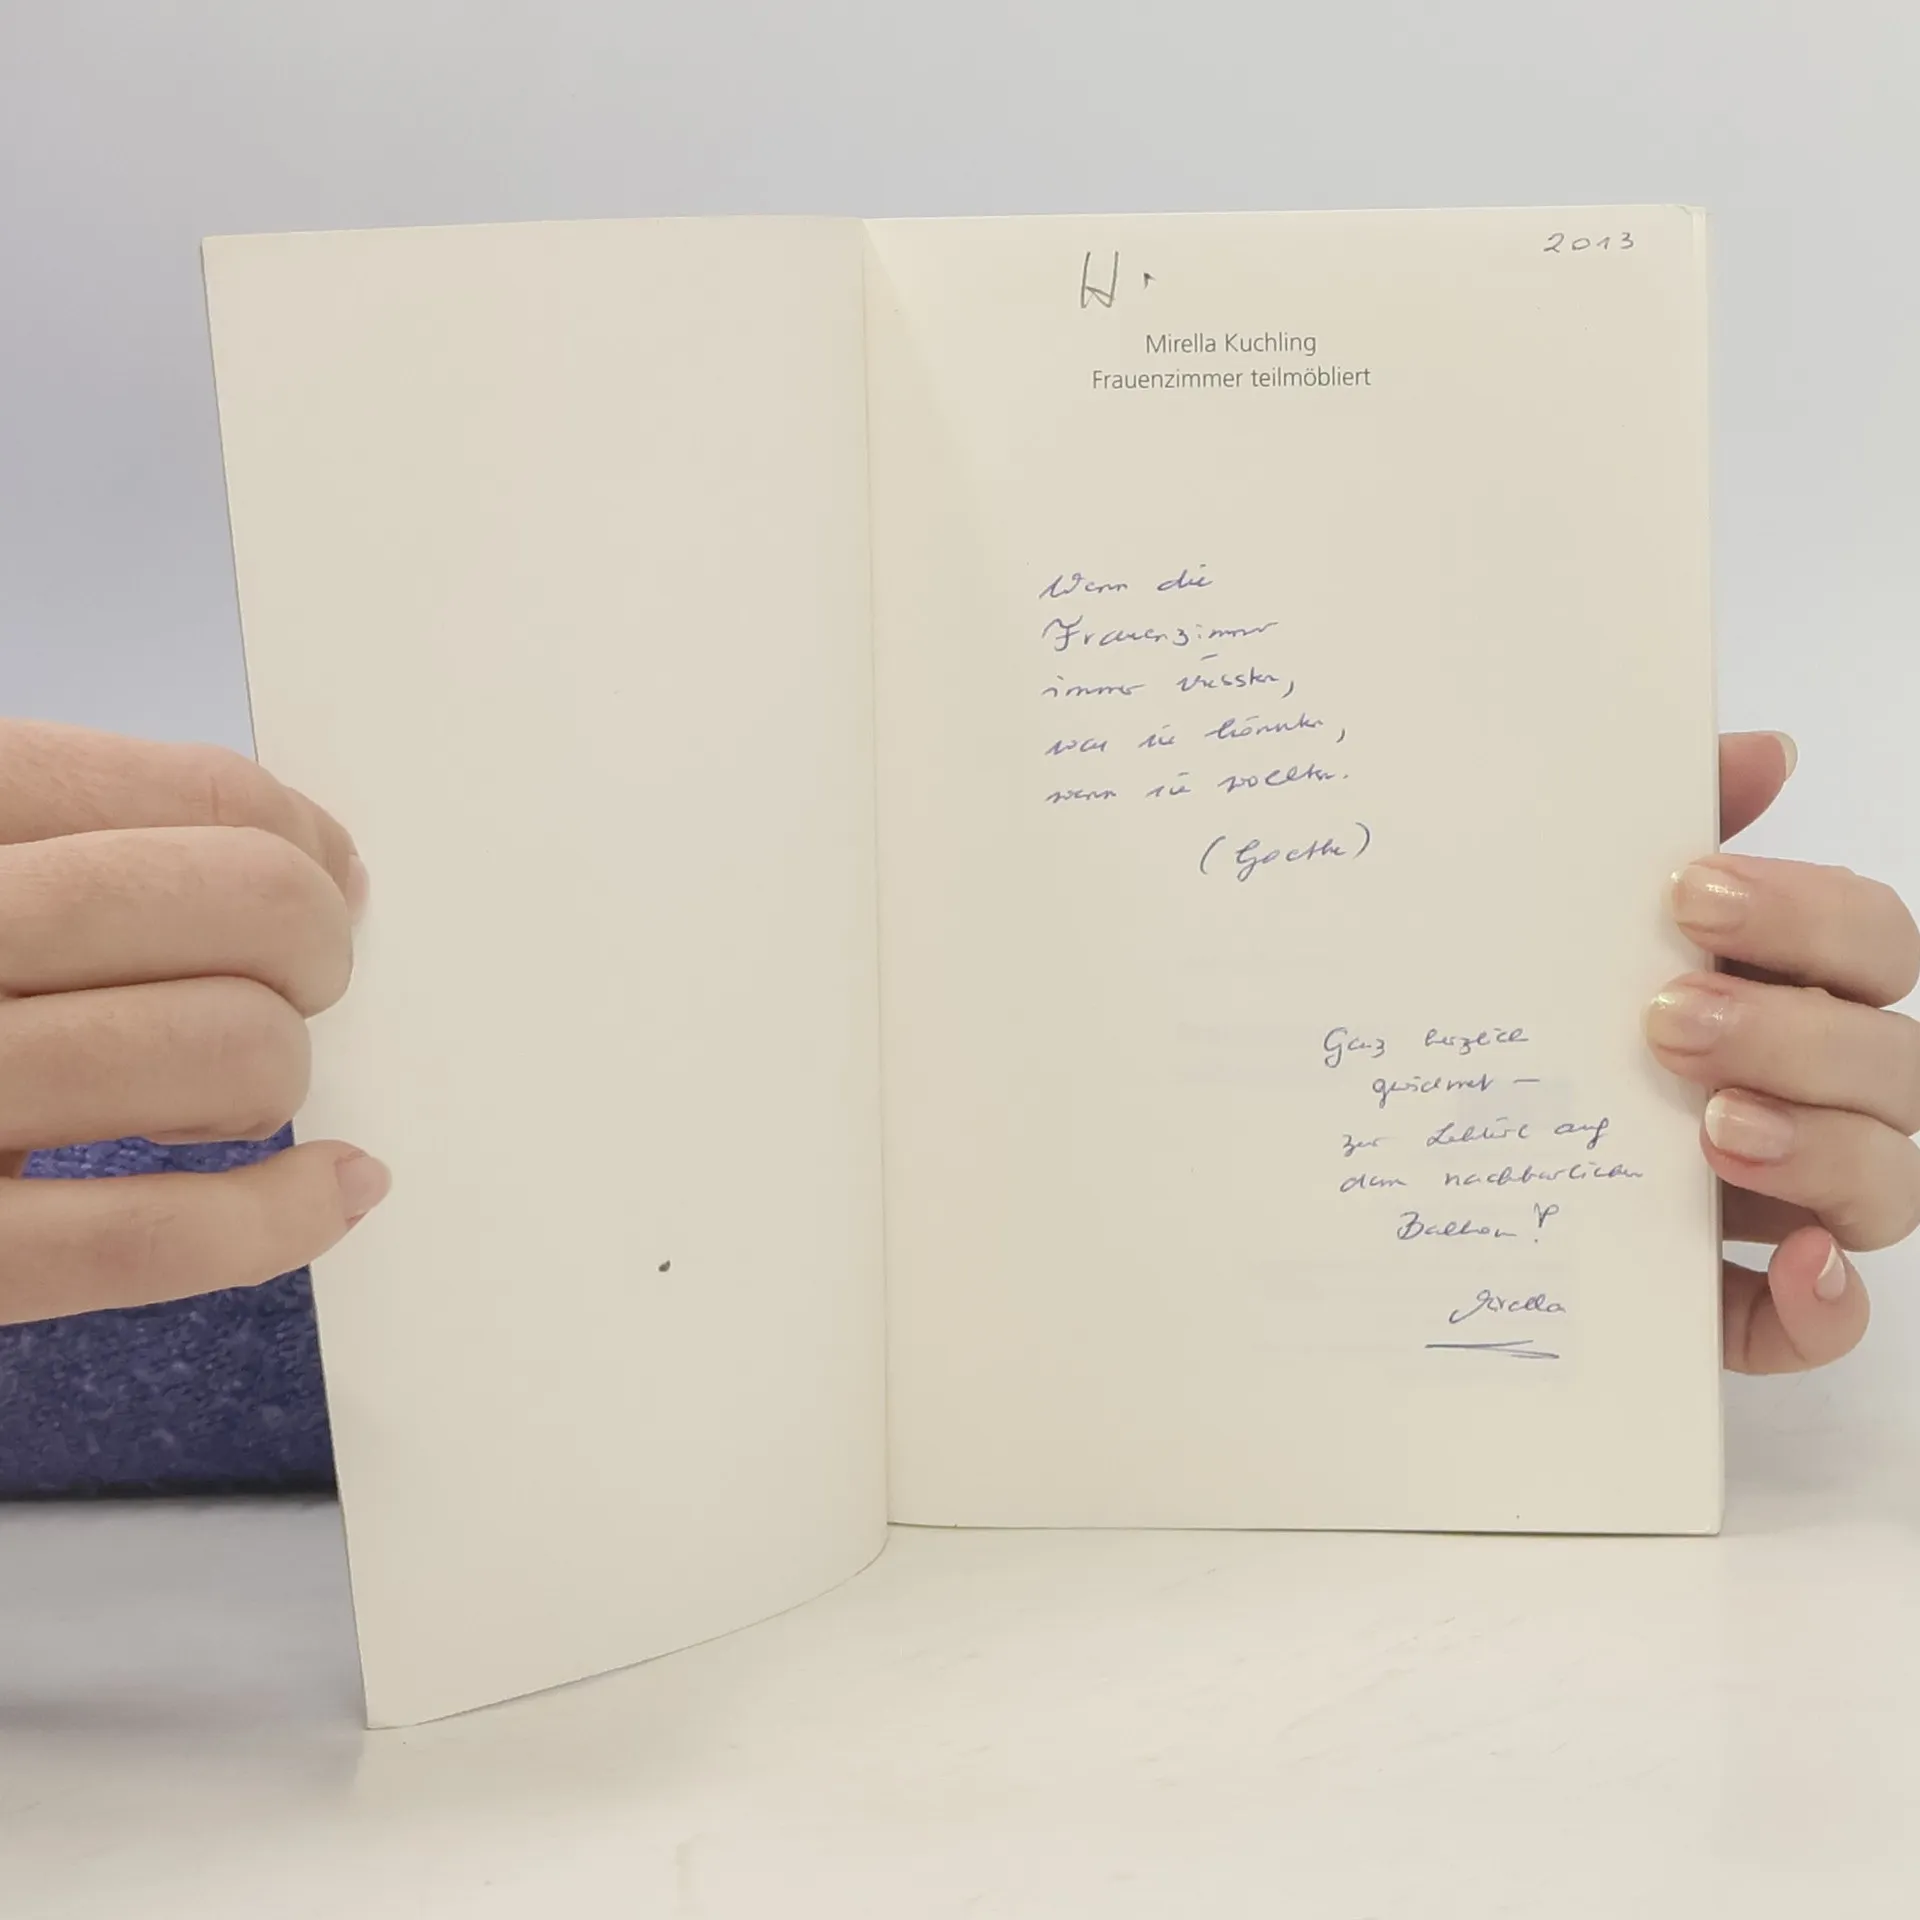 2013
H.
Mirella Kuchling
Frauenzimmer teilmöbliert
Wenn die
Frauenzimmer
immer wüssten,
was sie könnten,
wenn sie wollten.
(Goethe)
Ganz herzlich
gewidmet –
zur Lektüre auf
dem nachbarlichen
Balkon!
Mirella